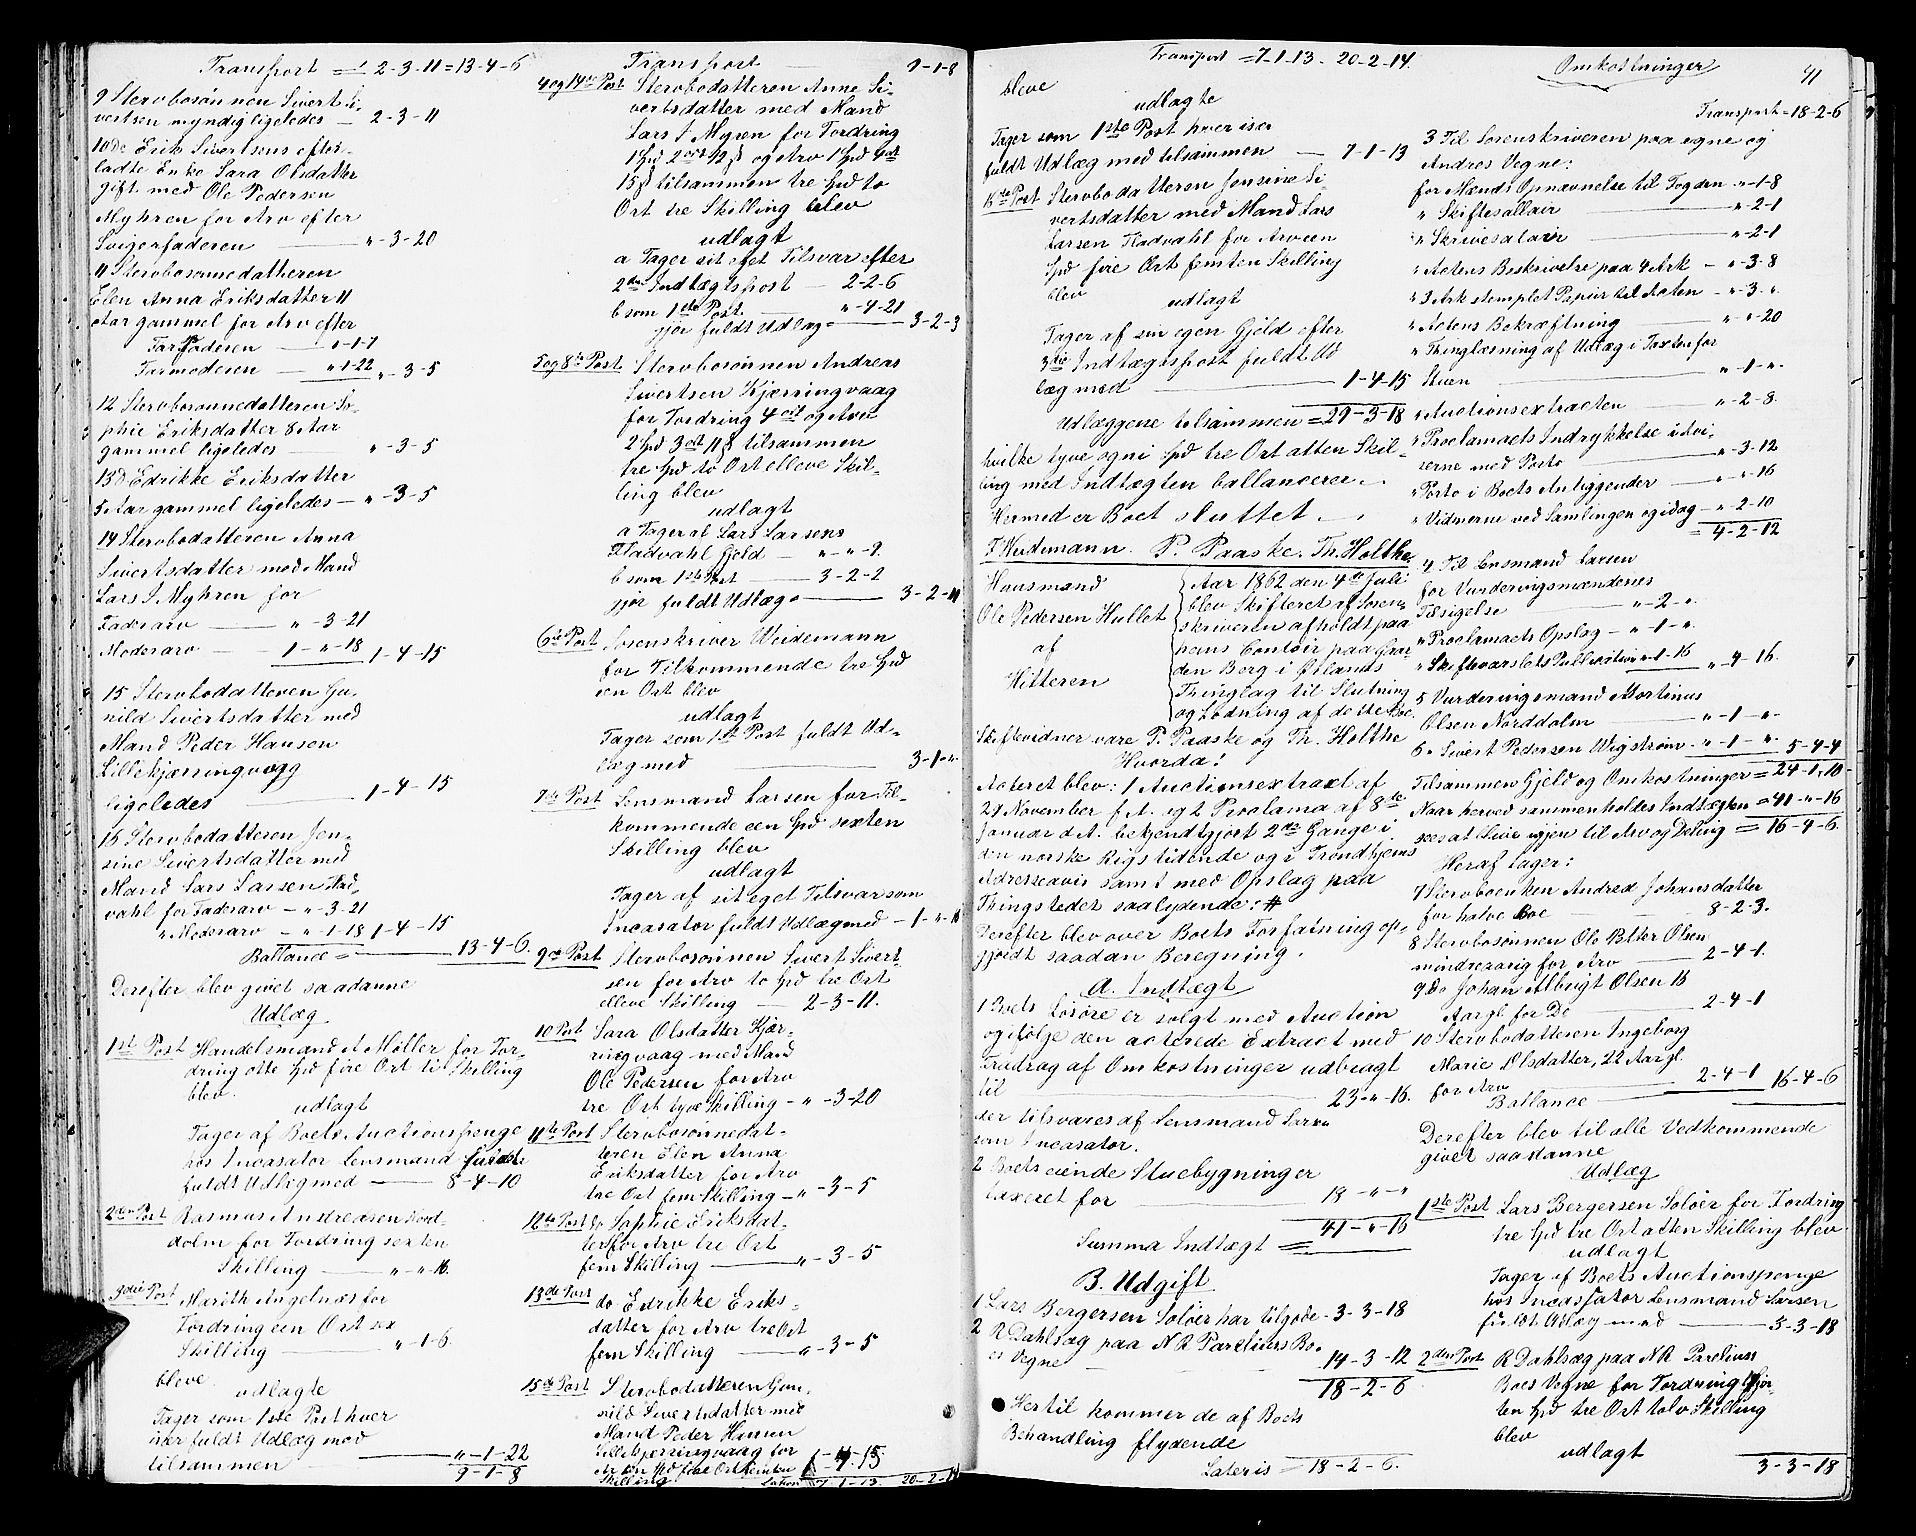 Transport = 2-3-11 = 13-4-6
9 Stervbosønnen Sivert Si-
vertsen myndig ligeledes — 2-3-11
10 Do Erik Sivertsens efter-
ladte Enke Sara Olsdatter
gift med Ole Pedersen
Myhren for Arv efter
Svigerfaderen — " - 3 - 20
11 Stervbosønnedatteren
Elen Anna Eriksdatter 11
Aar gammel for Arv efter
Farfaderen — " - 1 - 7
Farmoderen — " 1-22 " - 3-5
12 Stervbosønnedatteren So-
phie Eriksdatter 8 Aar
gammel ligeledes — " - 3-5
13 Do Edrikke Eriksdatter
5 Aar gammel ligeledes — " - 3-5
14 Stervbodatteren Anna
Sivertsdatter med Mand
Lars I Myhren for
Faderarv — " - 3-21
Moderarv — 1 - " - 18 1-4-15
15 Stervbodatteren Gu-
nild Sivertsdatter med
Mand Peder Hansen
Lillekjærringvogg
ligeledes — 1-4-15
16 Stervbodatteren Jen-
sine Sivertsdatter med
Mand Lars Larsen Flad-
vahl for Faderarv — " - 3-21
" Moderarv — " - 1-18 1-4-15
Ballance = — 13-4-6.
Derefter blev givet saadanne
Udlæg
1ste Post Handelsmand A Møller for For-
dring otte Spd fire Ort ti Skilling
blev
udlagt
Tager af Boets Auctionspenge
hos Incasator Lensmand
fuldt Udlæg med — 8-4-10
2den Post Rasmus Andreasen Nord-
dolm for Fordring sexten
Skilling — " - " - 16.
3die Post Marith Angelnæs for
Fordring een Ort sex
Skilling — " - 1-6.
bleve
udlagte
Tager som 1ste Post hver
især fuldt Udlæg med
tilsammen — " - 1-22
9-1-8
Transport — 9-1-8
4 og 14de Post Stervbodatteren Anne Si-
vertsdatter med Mand
Lars I Myren for Fordring
1 Spd 2 ort 12 ß og Arv 1 Spd 4 ort
15 ß tilsammen tre Spd to
Ort tre Skilling blev
udlagt
a Tager sit eget Tilsvar efter
2den Indtægtspost — 2-2-6
b som 1ste Post — " - 4-21
gjør fuldt Udlæg = — 3-2-3
5 og 8de Post Stervbosønnen Andreas
Sivertsen Kjærringvaag
for Fordring 4 ort og Arv
2 Spd 3 ort 11 ß tilsammen
tre Spd to Ort elleve Skil-
ling blev
udlagt
a Tager af Lars Larsens
Fladvahl Gjeld — " - " - 9.
b som 1ste Post — 3-2-2
gjør fuldt Udlæg = — 3-2-11
6te Post Sorenskriver Weidemann
for Tilkommende tre Spd
een Ort blev
udlagt
Tager som 1st Post fuldt Ud-
læg med — 3-1-".
7de Post Lensmand Larsen for Til-
kommende een Spd sexten
Skilling blev
udlagt
Tager af sit eget Tilsvar som
Incasator fuldt Udlæg med — 1 - " - 16
9de Post Stervbosønnen Sivert Sivert-
sen for Arv to Spd tre Ort
elleve Skilling — 2-3-11.
10 Post Sara Olsdatter Kjær-
ringvaag med Mand
Ole Pedersen for Arv
tre Ort tyve Skilling — " - 3-20
11te Post Stervbosønnedat-
teren Elen Anna
Eriksdatter for Arv
tre Ort fem Skilling — " - 3-5
12te Post do Sophie Eriksdat-
ter for Arv tre Ort
fem Skilling — " - 3-5
13de Post do Edrikke Eriks-
datter for Arv tre Ort
fem Skilling — " - 3-5
15de Post Stervbodatteren Gun-
nild Sivertsdatter med
Mand Peder Hansen
Lillekjærringvaag for
Arv een Spd fire Ort femten 1-4-15
Skilling Lateris 7-1-13. 20-2-14
Transport = 7-1-13. 20-2-14.
bleve
udlagte
Tager som 1ste Post hver især
fuldt Udlæg med tilsammen — 7-1-13
16te Post Stervbodatteren Jensine Si-
vertsdatter med Mand Lars
Larsen Fladvahl for Arv een
Spd fire Ort femten Skilling
blev
udlagt
Tager af sin egen Gjeld efter
3die Indtægtspost fuldt Ud-
læg med — 1-4-15
Udlæggene tilsammen = 29-3-18
hvilke tyve og ni Spd tre Ort atten Skil-
ling med Indtægten ballancerer. —
Hermed er Boet sluttet. —
F Weidemann. P. Paaske. Th. Holthe.
Huusmand
Ole Pedersen Hullet
af
Hitteren
Aar 1862 den 4de Juli
blev Skifteret af Soren-
skriveren afholdt paa
hans Contoir paa Gaar-
den Borg i Ørlands
Thinglag til Slutning
og Lodning af dette Bo.
Skiftevidner vare P. Paaske og Th. Holthe
Hvorda!
Acteret blev: 1 Auctionsextract af
29 November f. A. og 2 Proclama af 8de
Januar d. A. bekjendtgjort 2de Gange i
den norske Rigstidende og i Trondhjems
Adresseavis samt med Opslag paa
Thingstedet saalydende: #
Derefter blev over Boets Forfatning op-
gjordt saadan Beregning.
A. Indtægt
1 Boets Løsøre er solgt med Auction
og ifølge den acterede Extract med
Fradrag af Omkostninger udbragt
til — 23-"-16.
der tilsvares af Lensmand Larsen
som Incasator.
2 Boets eiende Stuebygninger
taxeret for — 18 - " - "
Summa Indtægt = 41 - " - 16
B. Udgift
1 Lars Bergersen Soløer har tilgode - 3-3-18
2 R Dahlsæg paa N R Pareliuss Bo-
es Vegne — 14-3-12
18-2-6
Hertil kommer de af Boets
Behandling flydende
Lateris = 18-2-6.
Omkostninger
41
Transport = 18-2-6
3 Til Sorenskriveren paa egne og
Andres Vegne:
for Mænds Opnævnelse til Fogden " - 1-8
" Skiftesallair — " - 2-1
" Skrivesalair — " - 2-1
" Actens Beskrivelse paa 4 Ark — " - 3-8
" 3 Ark stemplet Papiir til Acten — " - 3-".
" Actens Bekræftning — " - " - 20
" Thinglæsning af Udlæg i Taxten for
Stuen — " - 1-".
" Auctionsextracten — " - 2-8.
" Proclamaets Indrykkelse i Avi-
serne med Porto — " - 3-12
" Porto i Boets Anliggender — " - " - 16
" Vidnerne ved Samlingen og idag — " - 2-10
= 4-2-12
4 Til Lensmand Larsen
for Vurderingsmændenes
Tilsigelse — " - 2-".
" Proclamaets Opslag — " - 1-".
" Skiftevarslets Publication " - 1-16 " - 4-16.
5 Vurderingsmand Mortinus
Olsen Norddolm — " - 1-".
6 " Sivert Pedersen Wigstrøm - " - 1-". 5-4-4
Tilsammen Gjeld og Omkostninger = 24-1-10
Naar herved sammenholdes Indtægten = 41-"-16
sees at blive igjen til Arv og Deling = 16-4-6.
Heraf tager:
7 Stervboenken Andrea Johansdatter
for halve Boe — 8-2-3.
8 Stervbosønnen Ole Petter Olsen
mindreaarig for Arv — 2-4-1.
9 Do Johan Albrigt Olsen 18
Aar gl for Do — 2-4-1
10 Stervbodatteren Ingeborg
Marie Olsdatter, 22 Aar gl.
for Arv — 2-4-1 16-4-6
Ballance —
Derefter blev til alle Vedkommende
givet saadanne
Udlæg
1ste Post Lars Bergersen Soløer for Fordring
tre Spd tre Ort atten Skilling blev
udlagt
Tager af Boets Auctionspenge
hos Incassator Lensmand Larsen
fuldt Udlæg med — 3-3-18
2den Post R Dahlsæg paa N R Pareliuss
Boes Vegne for Fordring fjor-
ten Spd tre Ort tolv Skilling
blev
udlagt
3-3-18